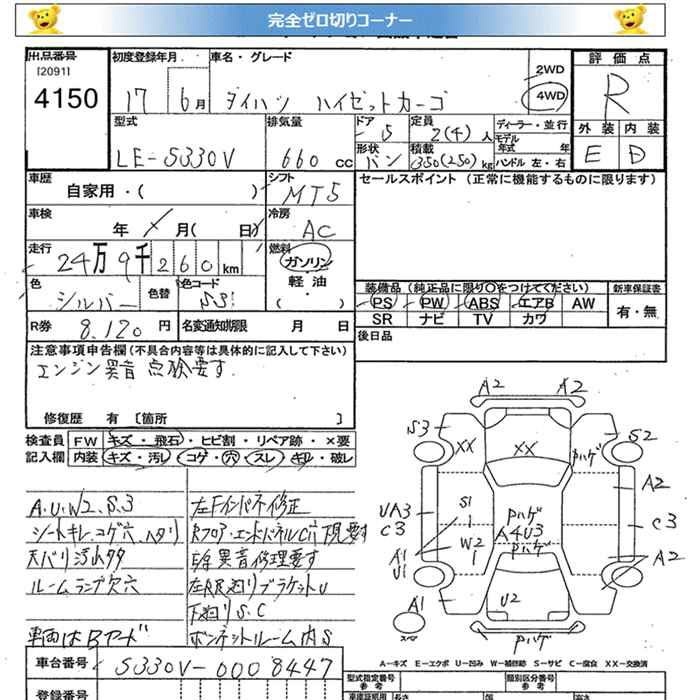 完全ゼロ切りコーナー
出品番号
[2091]
4150
初度登録年月
17 6月
車名・グレード
ダイハツ ハイゼットカーゴ
2WD
4WD
評価点
R
外装 内装
E D
型式
LE-S330V
排気量
660 cc
ドア
5
定員
2(4)人
ディーラー・並行
モデル年式 年
形状
バン
積載
350(250)kg
ハンドル 左・右
車歴
自家用・( )
シフト
MT5
セールスポイント (正常に機能するものに限ります)
車検
年 月( 日)
冷房
AC
走行
24万9千260km
燃料
ガソリン
軽油
( )
色
シルバー
色替
色コード
S31
装備品 (純正品に限り○をつけてください)
新車保証書
PS PW ABS エアB AW
有・無
SR ナビ TV カワ
R券
8,120円
名変通知期限 月 日
後日品
注意事項申告欄(不具合内容等は具体的に記入して下さい)
エンジン異音点検要す.
修復歴 有〔箇所 〕
検査員記入欄
FW キズ・飛石・ヒビ割・リペア跡・×要
内装 キズ・汚レ・コゲ・穴・スレ・キレ・破レ
A.U.W2.S.3
シートキレ.コゲ穴.ヘタリ
天バリ汚れタタ
ルームランプ欠穴
車両はBヤード
左Fインパネ修正
Rフロア・エンドパネルC穴現要す
異音修理要す
ブラケットU
下廻りS.C
ボンネットルーム内S
A2 A2
S3 XX XX Pハゲ S2
A2
UA3
C3
S1
Pハゲ
A4U3
Pハゲ
C3
A1
U1
W2
A2
A1
U2
スペ
Pハゲ
A-キズ E-エクボ U-凹み W-補修跡 S-サビ C-腐食 XX-交換済
車台番号
S330V-0008447
登録番号
型式指定番号
参考
類別区分番号
参考
車庫証明用
参考
長さ
幅
高さ